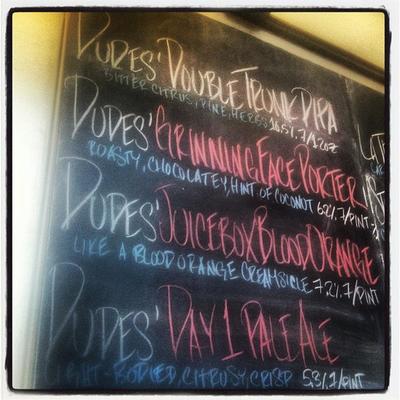 DUDES' DOUBLE TRUNK DIPA
BITTER CITRUS, PINE, HERBS 10.5% 7/12OZ
DUDES' GRINNING FACE PORTER
ROASTY, CHOCOLATEY, HINT OF COCONUT 6.2% 7/PINT
DUDES' JUICEBOX BLOOD ORANGE
LIKE A BLOOD ORANGE CREAMSICLE 7.2% 7/PINT
DUDES' DAY 1 PALE ALE
LIGHT-BODIED, CITRUSY, CRISP 5.3% 7/PINT